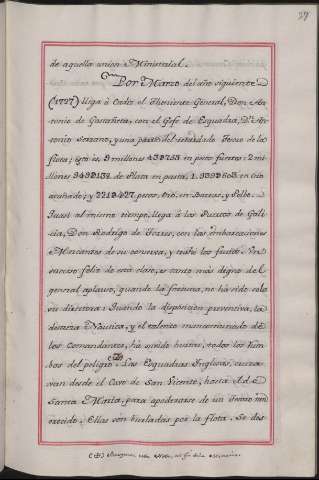 27
de aquella union Ministerial.
Por Marzo del año siguiente
(1727) llega á Cadiz el Theniente General, Don An-
tonio de Gastañeta, con el Gefe de Esquadra, Dn. An-
tonio Serrano, y una parte del Tesoro de la
flota; esto es, 9 millones 439753 en pesos fuertes: 2 mi-
llones 3499132 de Plata en pasta, 1.
acuñado; y 2219427 pesos, Oro, en Barras, y Polbo.
Quasi al mismo tiempo, llega á los Puertos de Gali-
cia, Don Rodrigo de Torres, con las embarcaciones
Mercantes de su conserva, y trahe los frutos. Un
suceso feliz de esta clase, es tanto más digno del
general aplauso, quando la fortuna, no há sido solo
su directora: Quando la disposicion preventiva, la
destreza Nautica, y el talento
los Comandantes, ha savido huir todos los Rum-
bos del peligro. Las Esquadras Inglesas, cruza-
van desde el Cavo de San Vicente, hasta el de
Santa Maria, para apoderarse de un Tesoro
Ellas son burladas por la flota. Se dos